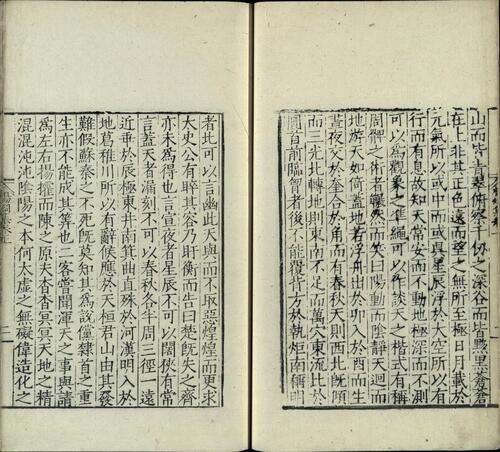 山而皆青翠俯察千仞之深谷而皆黝黑蒼蒼
在上非其正色遠而望之無所至極日月載於
元氣所以或中而或昃星辰浮於太空所以有
行而有息故知天常安而不動地極深而不測
可以為觀象之準繩可以作談天之楷式有稱
周髀之術者囅然而笑曰陽動而陰靜天迴而
地游天如倚蓋地若浮舟出於卯入於酉而生
晝夜交於奎合於角而有春秋天則西北既傾
而三光北轉地則東南不足而萬穴東流比於
圓首前臨胷者後不能覆背方於執炬南稱明
者北可以言幽此天與而不取惡煌煌而更求
太史公有睟其容乃盱衡而告曰楚既失之齊
亦未為得也言宣夜者星辰不可以闊狹有常
言蓋天者漏刻不可以春秋各半周三徑一遠
近垂於辰極東井南箕曲直殊於河漢明入於
地葛稚川所以有辭候應於天桓君山由其發
難假蘇秦之不死既莫知其為說儻隸首之重
生亦不能成其筭也二客嘗聞渾天之事與請
為左右揚搉而陳之原夫杳杳冥冥天地之精
混混沌沌陰陽之本何太虛之無礙偉造化之
二